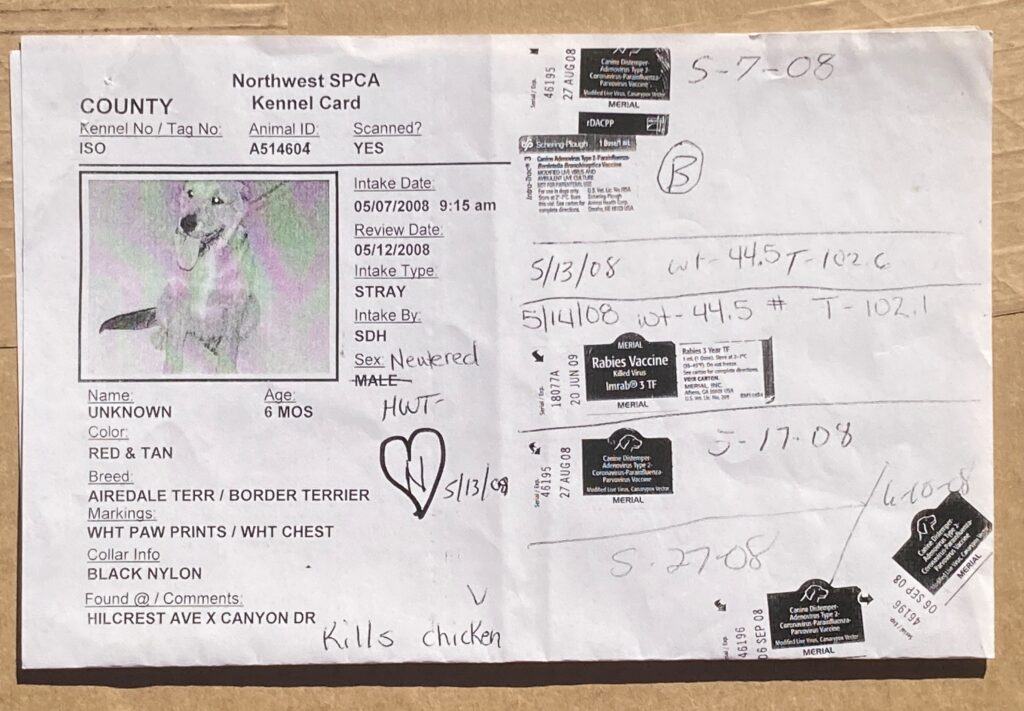 Northwest SPCA
Kennel Card
COUNTY
Kennel No / Tag No: Animal ID: Scanned?
ISO A514604 YES
Intake Date:
05/07/2008 9:15 am
Review Date:
05/12/2008
Intake Type:
STRAY
Intake By:
SDH
Sex: Neutered
MALE
HWT-
Name: Age:
UNKNOWN 6 MOS
Color:
RED & TAN
Breed:
AIREDALE TERR / BORDER TERRIER
Markings:
WHT PAW PRINTS / WHT CHEST
Collar Info
BLACK NYLON
Found @ / Comments:
HILCREST AVE X CANYON DR
N 5/13/08
Kills chicken
Serial / Exp.
46195
27 AUG 08
Canine Distemper-
Adenovirus Type 2-
Coronavirus-Parainfluenza-
Parvovirus Vaccine
Modified Live Virus, Canarypox Vector
MERIAL
rDACPP
5-7-08
Schering-Plough 1 Dose/1 mL
Intra-Trac® 3
Canine Adenovirus Type 2-Parainfluenza-
Bordetella Bronchiseptica Vaccine
MODIFIED LIVE VIRUS AND
AVIRULENT LIVE CULTURE
B
5/13/08 wt- 44.5 T-102.6
5/14/08 wt- 44.5 # T- 102.1
18077A
20 JUN 09
MERIAL
Rabies Vaccine
Killed Virus
Imrab® 3 TF
MERIAL
Rabies 3 Year TF
1 mL (1 Dose). Store at 2-7°C
(35-45°F). Do not freeze.
See carton for complete directions.
MERIAL, INC.
Athens, GA 30601 USA
Serial / Exp.
46195
27 AUG 08
Canine Distemper-
Adenovirus Type 2-
Coronavirus-Parainfluenza-
Parvovirus Vaccine
Modified Live Virus, Canarypox Vector
MERIAL
5-17-08
5-27-08
46196
06 SEP 08
Canine Distemper-
Adenovirus Type 2-
Coronavirus-Parainfluenza-
Parvovirus Vaccine
Modified Live Virus, Canarypox Vector
MERIAL
6-10-08
Canine Distemper-
Adenovirus Type 2-
Coronavirus-Parainfluenza-
Parvovirus Vaccine
Modified Live Virus, Canarypox Vector
MERIAL
06 SEP 08
46196
Serial / Exp.